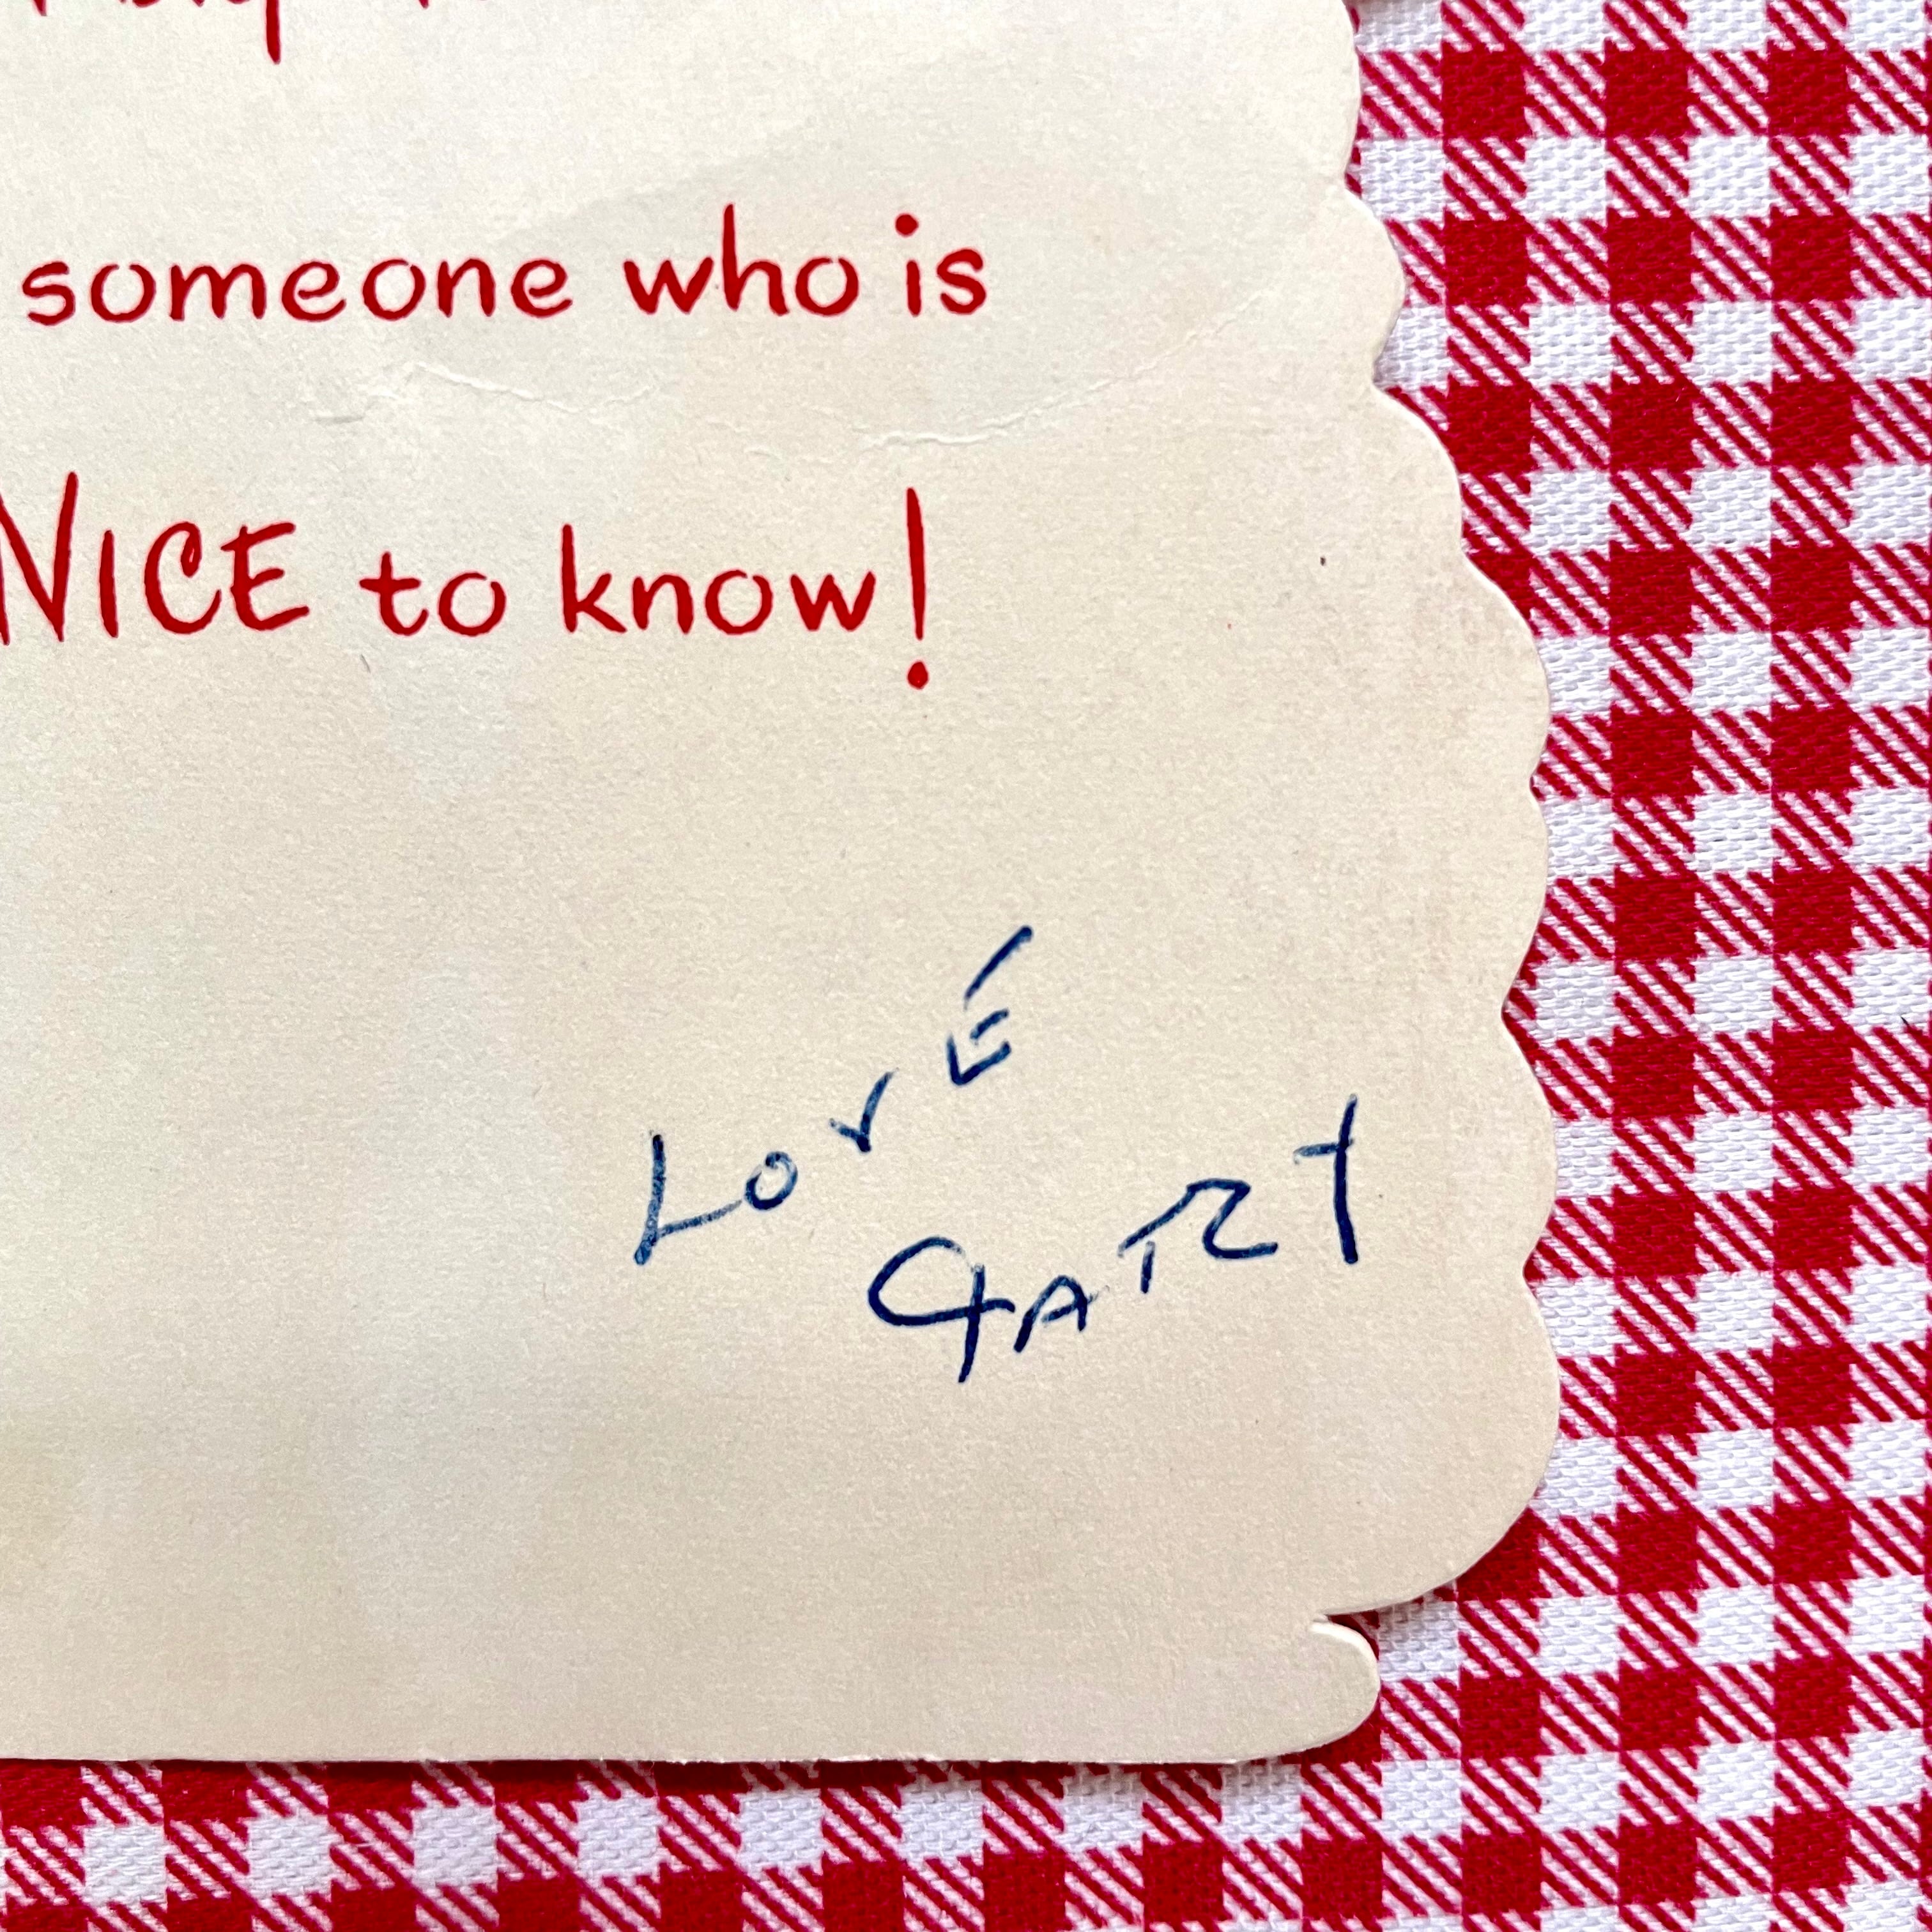 someone who is
NICE to know!
LOVE
GARY